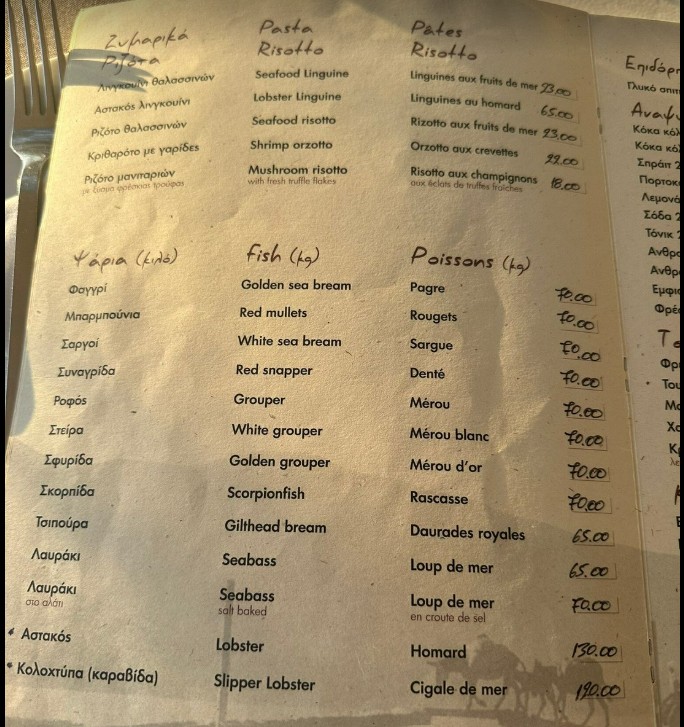 Ζυμαρικά Pasta Pâtes
Ριζότα Risotto Risotto
Λινγκουίνι θαλασσινών Seafood Linguine Linguines aux fruits de mer 23.00
Αστακός λινγκουίνι Lobster Linguine Linguines au homard 65.00
Ριζότο θαλασσινών Seafood risotto Rizotto aux fruits de mer 23.00
Κριθαρότο με γαρίδες Shrimp orzotto Orzotto aux crevettes 22.00
Ριζότο μανιταριών Mushroom risotto Risotto aux champignons 18.00
με ξύσμα φρέσκιας τρούφας with fresh truffle flakes aux éclats de truffes fraîches
Ψάρια (κιλό) Fish (kg) Poissons (kg)
Φαγγρί Golden sea bream Pagre 70.00
Μπαρμπούνια Red mullets Rougets 70.00
Σαργοί White sea bream Sargue 70.00
Συναγρίδα Red snapper Denté 70.00
Ροφός Grouper Mérou 70.00
Στείρα White grouper Mérou blanc 70.00
Σφυρίδα Golden grouper Mérou d'or 70.00
Σκορπίδα Scorpionfish Rascasse 70.00
Τσιπούρα Gilthead bream Daurades royales 65.00
Λαυράκι Seabass Loup de mer 65.00
Λαυράκι Seabass Loup de mer 70.00
στο αλάτι salt baked en croute de sel
* Αστακός Lobster Homard 130.00
* Κολοχτύπα (καραβίδα) Slipper Lobster Cigale de mer 120.00
Γλυκό
Κόκα
Κόκα
Σπράιτ
Σόδα
Τόνικ